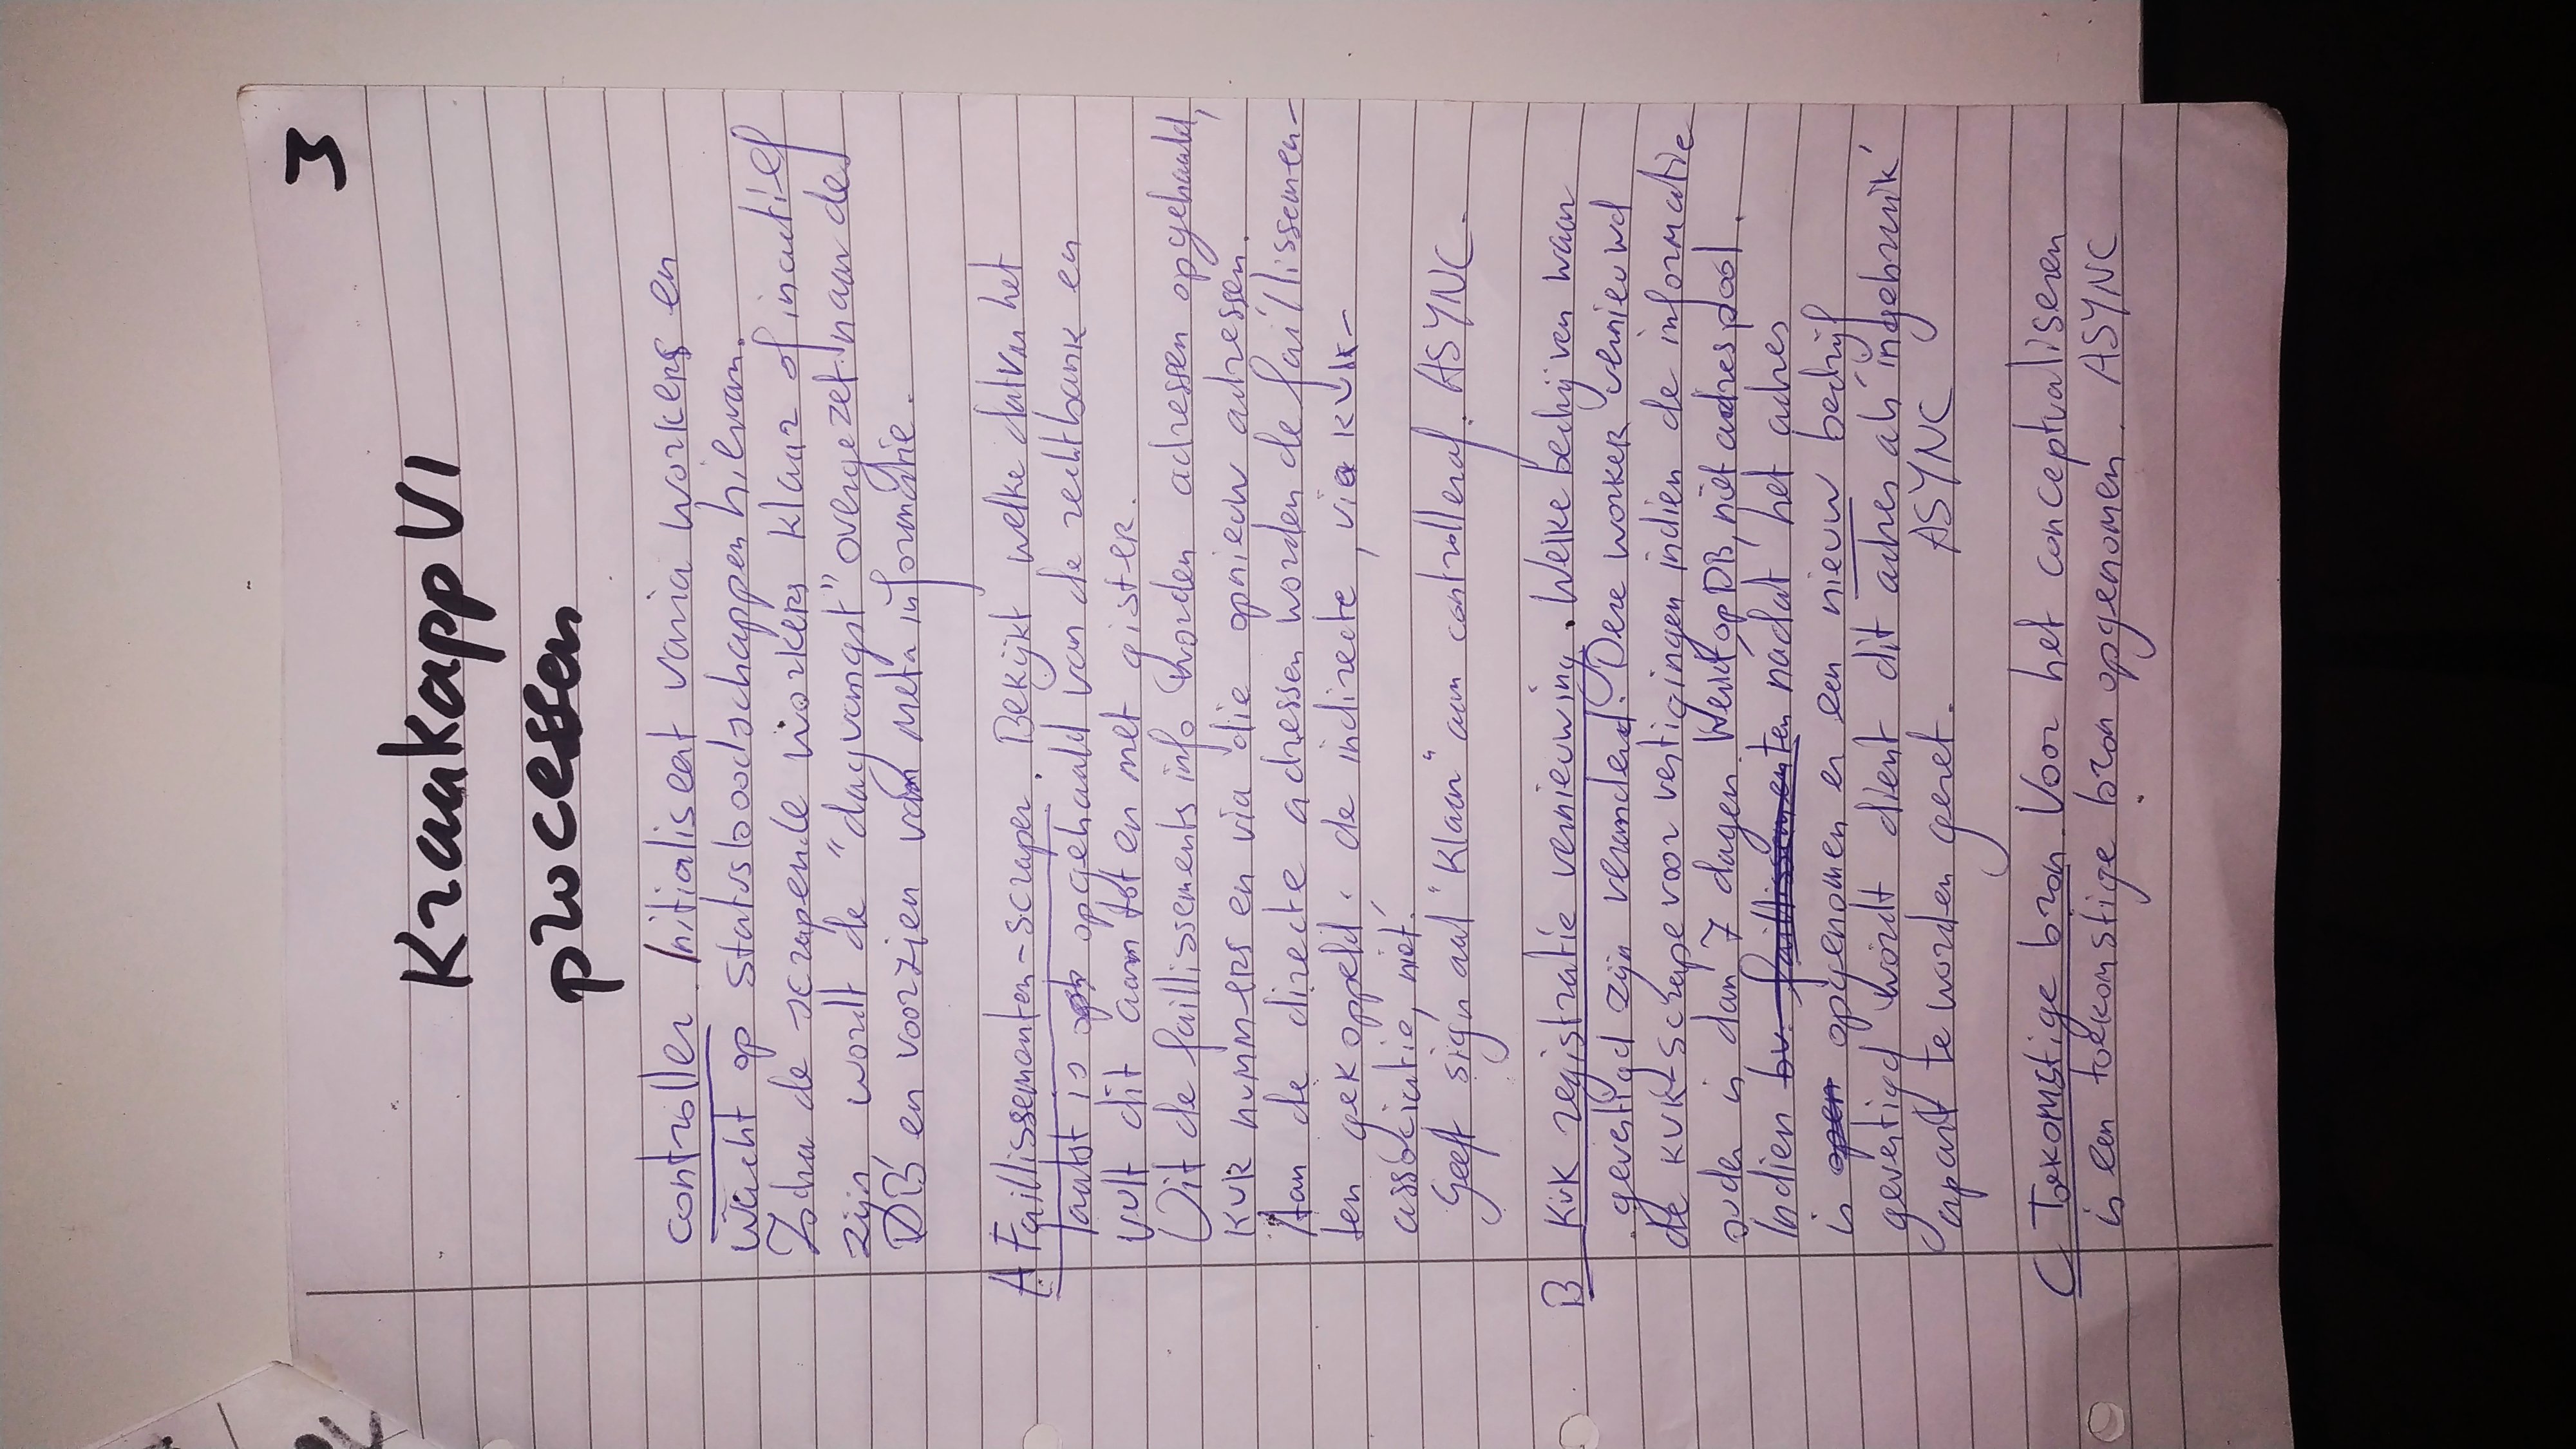 3
Kraakapp V1
processen
controller. Initialiseert varia workers en
wacht op statusboodschappen hiervan.
Zodra de scrapende workers klaar of inactief
zijn, wordt de "dagvangst" overgezet naar de
DB en voorzien van meta informatie.
A Faillissementen-scraper. Bekijkt welke datum het
laatst is opgehaald van de rechtbank en
vult dit aan tot en met gister.
Uit de faillissements info worden adressen opgehaald,
KVK nummers en via die opnieuw adressen.
Aan de directe adressen worden de faillissemen-
ten gekoppeld. de indirecte, via KVK-
associatie, niet.
Geeft signaal "Klaar" aan controller af. ASYNC.
B KvK registratie vernieuwing. Welke bedrijven waar
gevestigd zijn veranderd. Deze worker vernieuwd
de KVK-scrape voor vestigingen indien de informatie
ouder is dan 7 dagen. Werkt op DB, niet adrespool.
Indien bv. faillissementen nadat het adres
is open opgenomen er een nieuw bedrijf
gevestigd wordt dient dit adres als 'ingebruik'
apart te worden gezet. ASYNC
C Toekomstige bron. Voor het conceptualiseren
is een toekomstige bron opgenomen. ASYNC